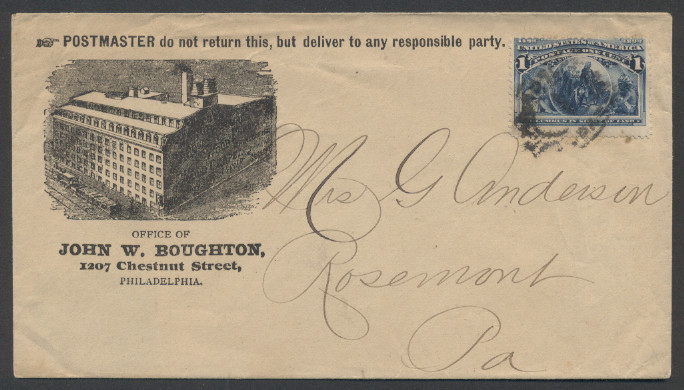 ☞ POSTMASTER do not return this, but deliver to any responsible party.
1492 1892
UNITED STATES OF AMERICA
POSTAGE ONE CENT
1 1
COLUMBUS IN SIGHT OF LAND
OFFICE OF
JOHN W. BOUGHTON,
1207 Chestnut Street,
PHILADELPHIA.
Mrs G Anderson
Rosemont
Pa